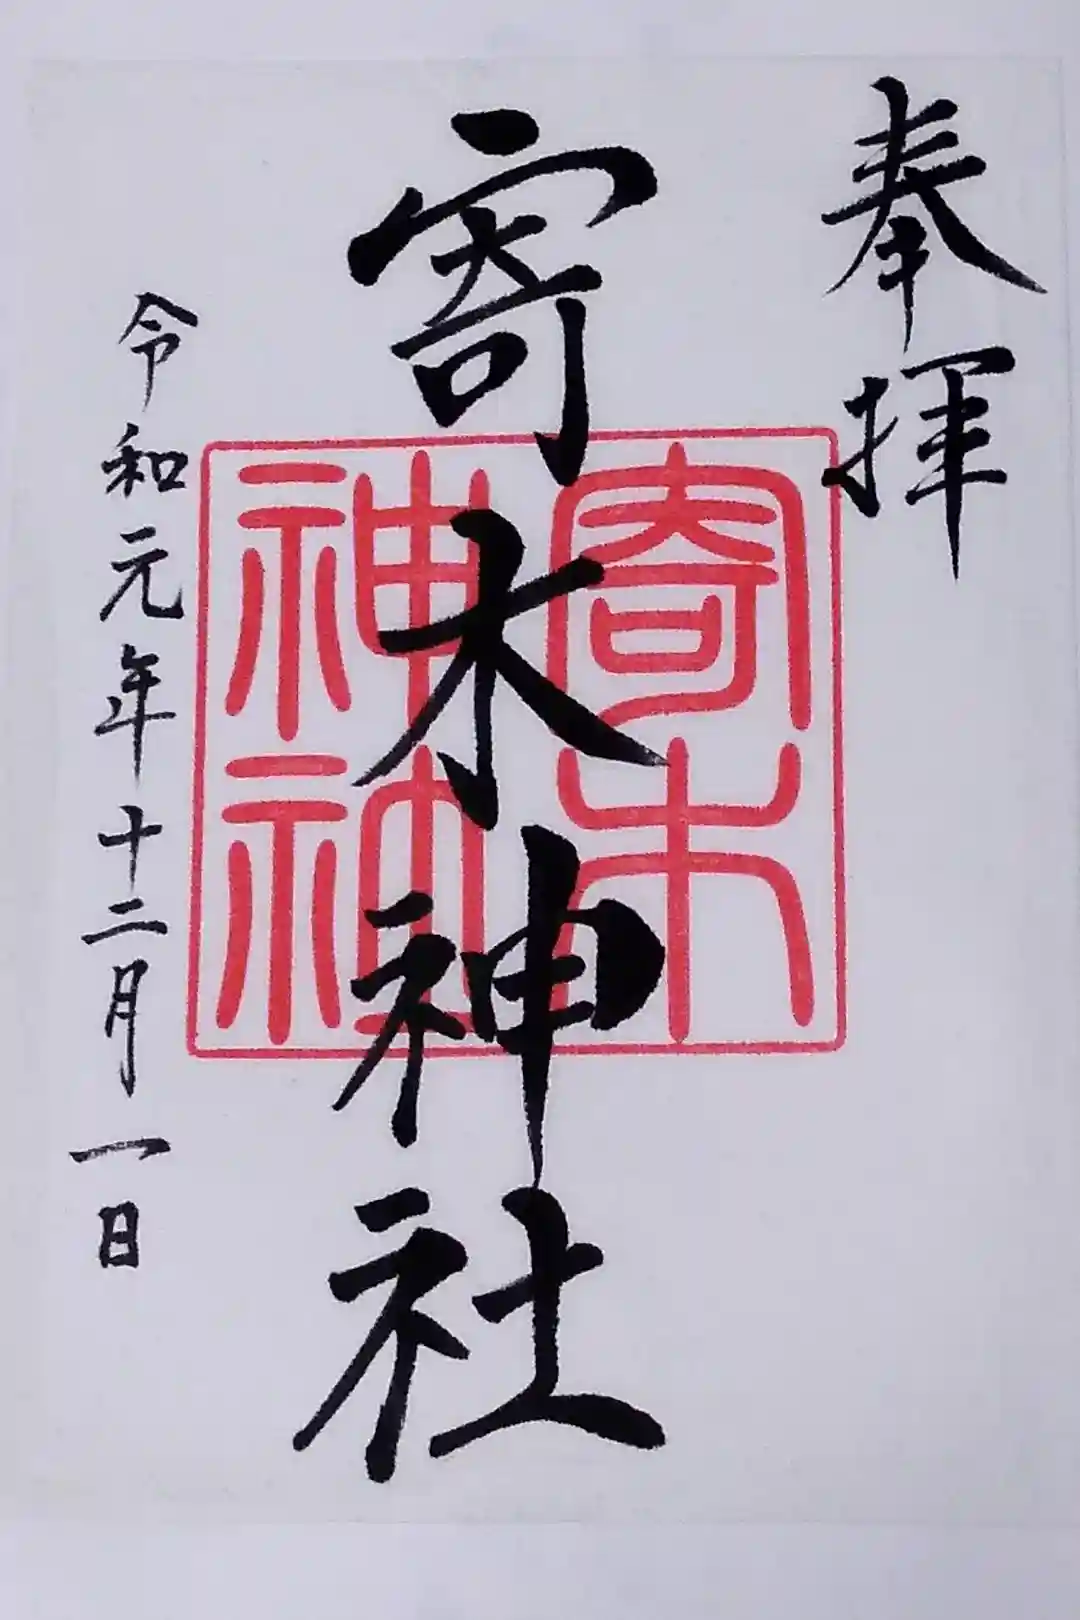 奉拝
寄木神社
寄木
神社
令和元年十二月一日